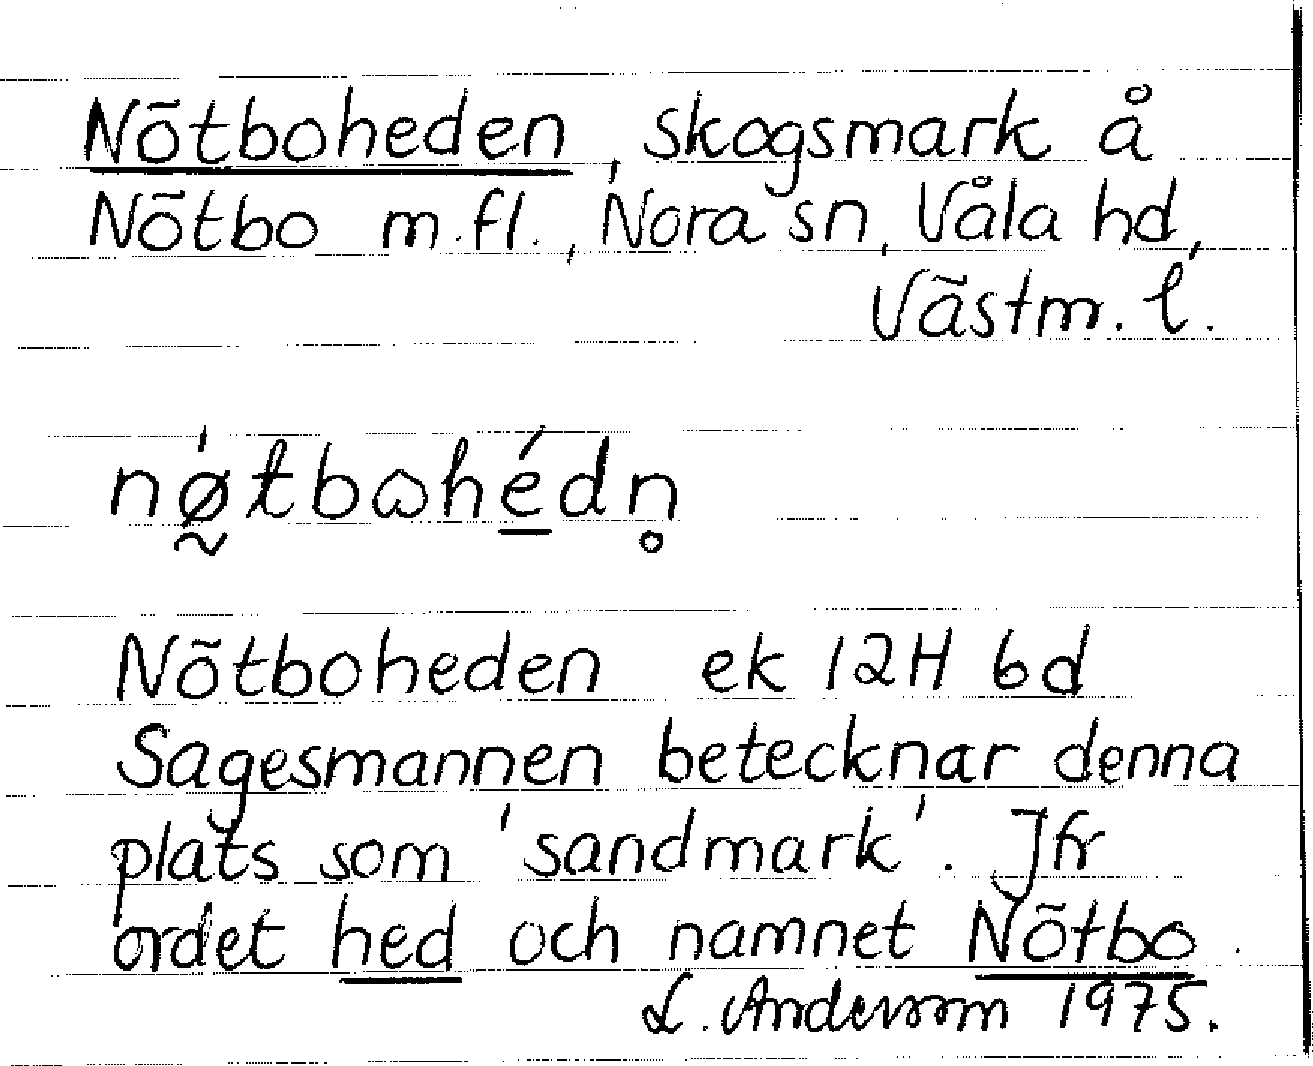 Nõtboheden, skogsmark å
Nõtbo m.fl., Nora sn, Våla hd,
Västm. l.
nǿ̰tbɷhé̱dn̥
Nõtboheden ek 12H 6d
Sagesmannen betecknar denna
plats som 'sandmark'. Jfr
ordet hed och namnet Nõtbo.
L. Andersson 1975.